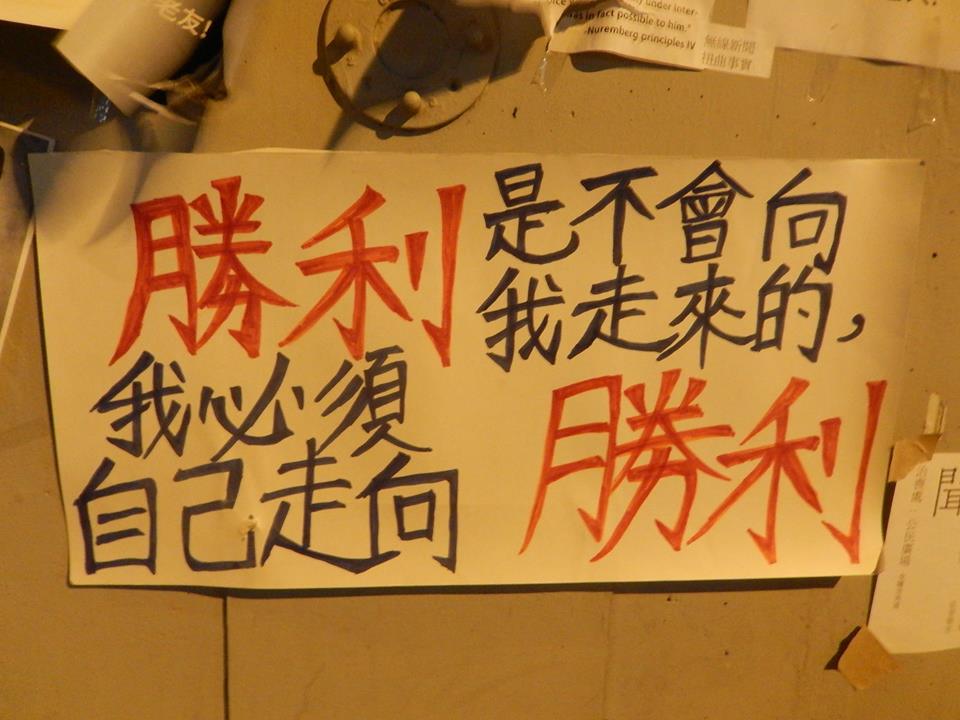 老友!
under inter-
as in fact possible to him."
-Nuremberg principles IV
無線新聞
扭曲事實
勝利是不會向
我走來的,
我必須
自己走向勝利
聞